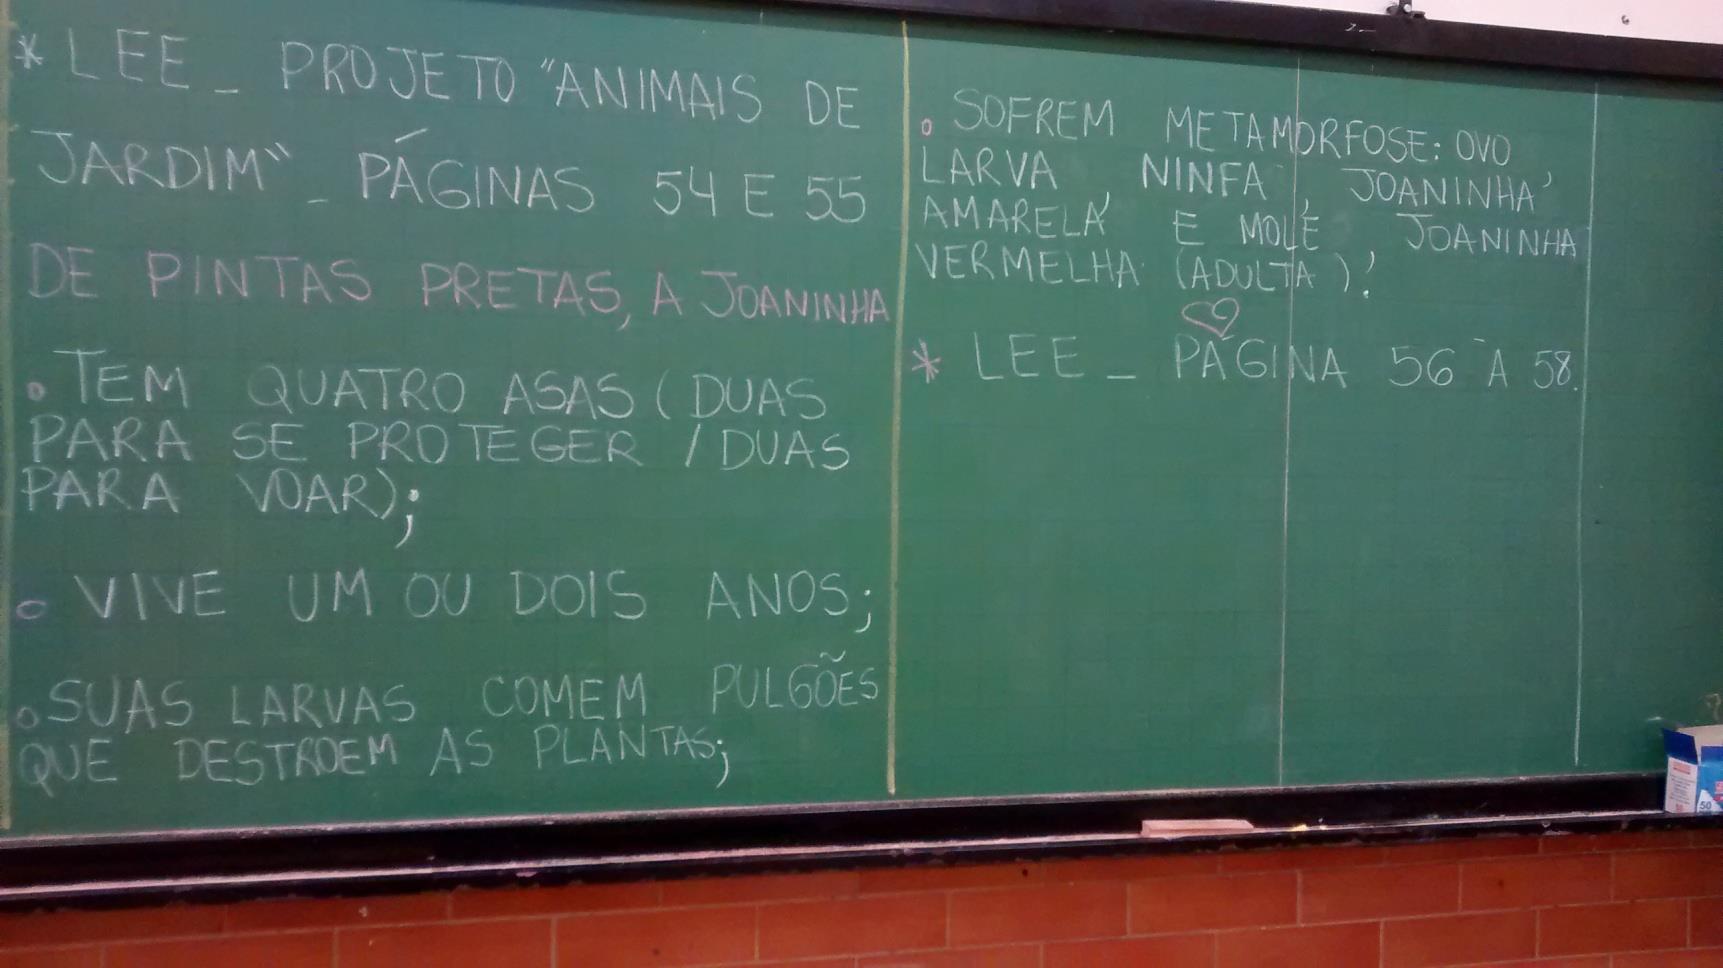 * LEE _ PROJETO "ANIMAIS DE
JARDIM" _ PÁGINAS 54 E 55
DE PINTAS PRETAS, A JOANINHA
• TEM QUATRO ASAS (DUAS
PARA SE PROTEGER / DUAS
PARA VOAR);
• VIVE UM OU DOIS ANOS;
• SUAS LARVAS COMEM PULGÕES
QUE DESTROEM AS PLANTAS;
• SOFREM METAMORFOSE: OVO,
LARVA, NINFA, JOANINHA
AMARELA E MOLE, JOANINHA
VERMELHA (ADULTA)!
* LEE _ PÁGINA 56 A 58.
50